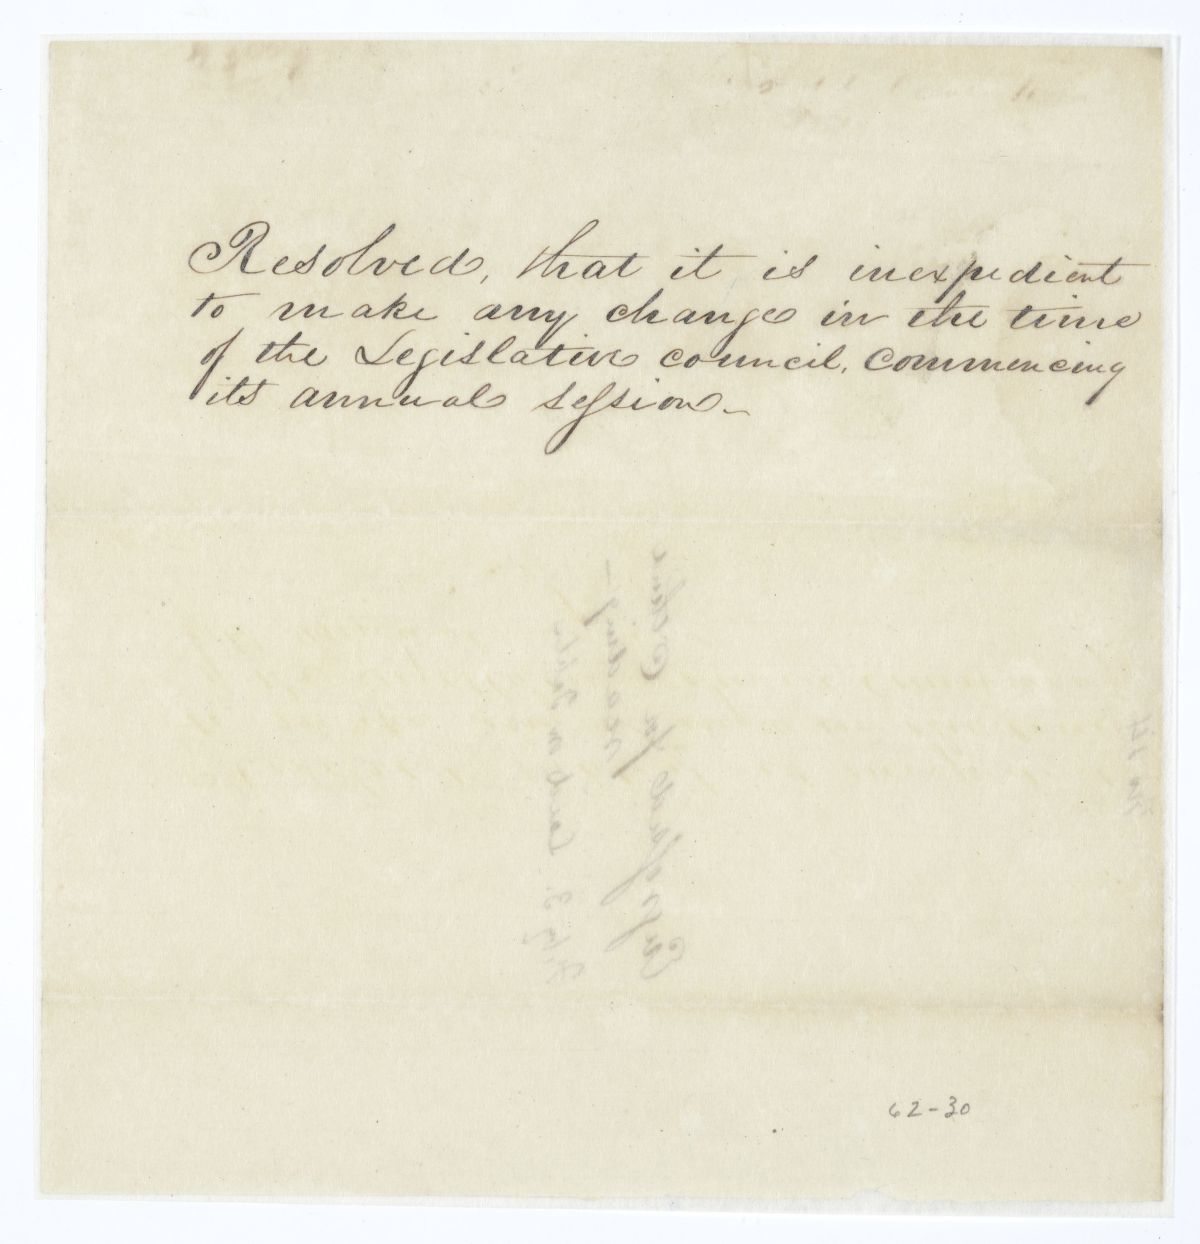 Resolved, that it is inexpedient
to make any change in the time
of the Legislative council, commencing
its annual session.
62-30